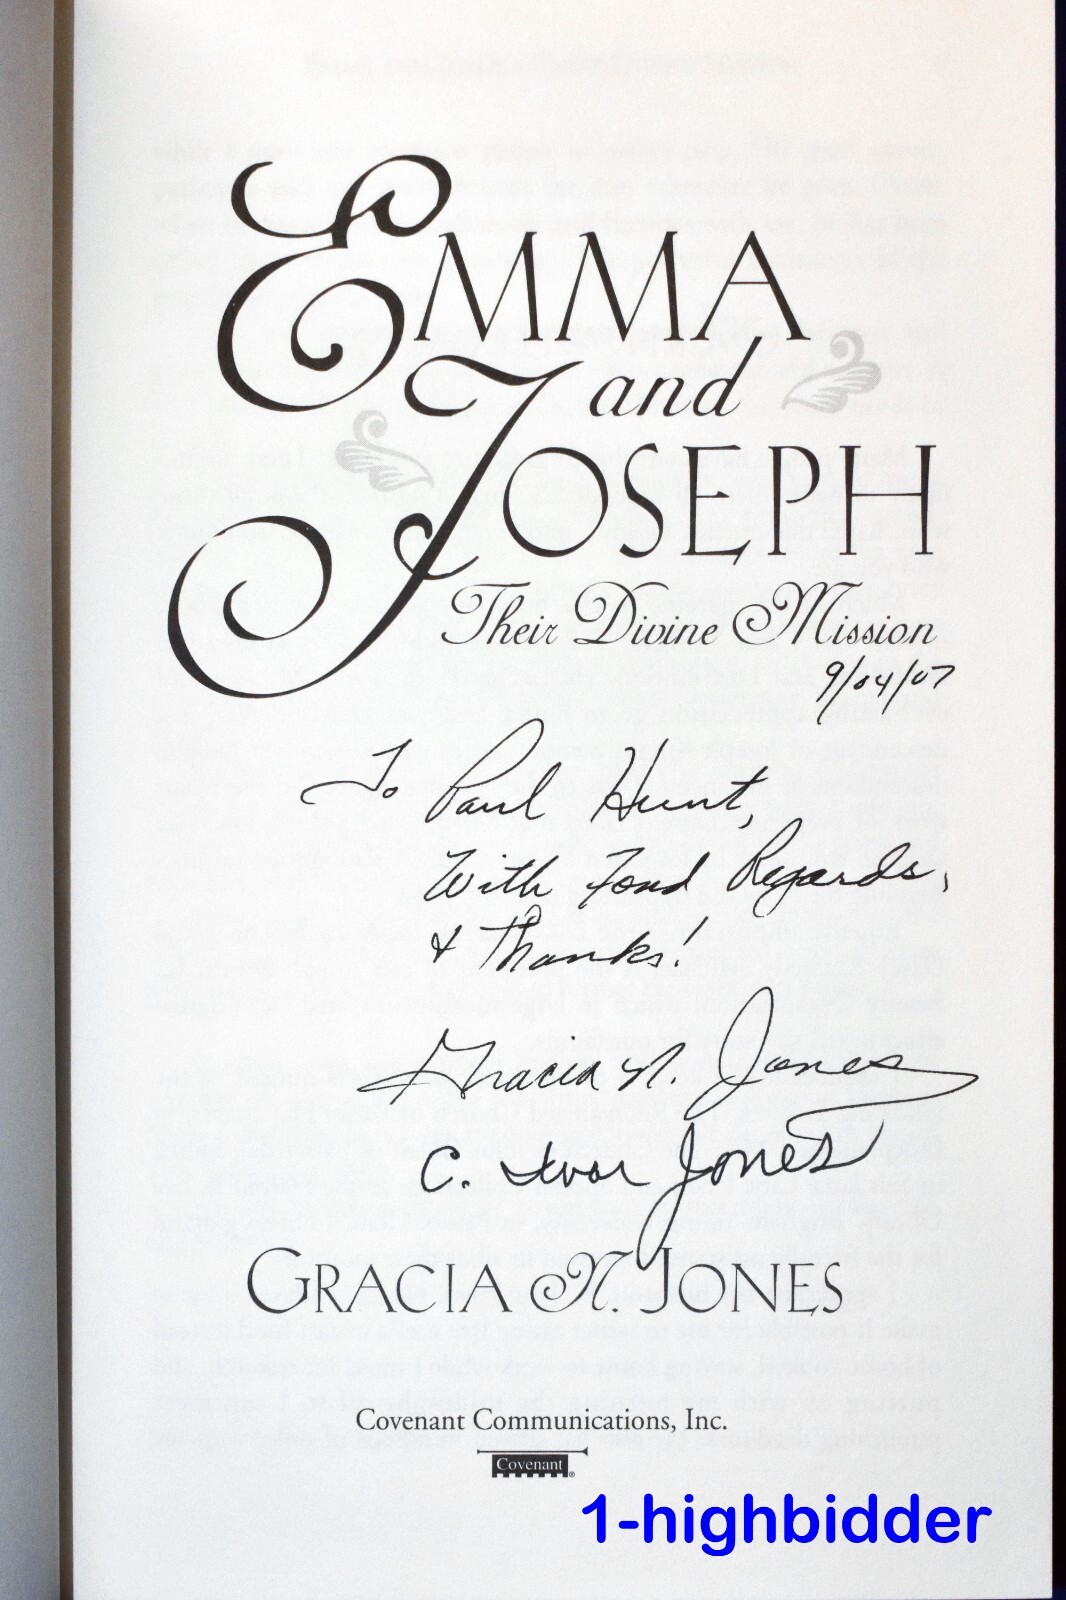 EMMA
and
JOSEPH
Their Divine Mission
9/04/07
To Paul Hunt,
With Fond Regards,
& Thanks!
Gracia N. Jones
C. Ivor Jones
GRACIA N. JONES
Covenant Communications, Inc.
Covenant®
1-highbidder